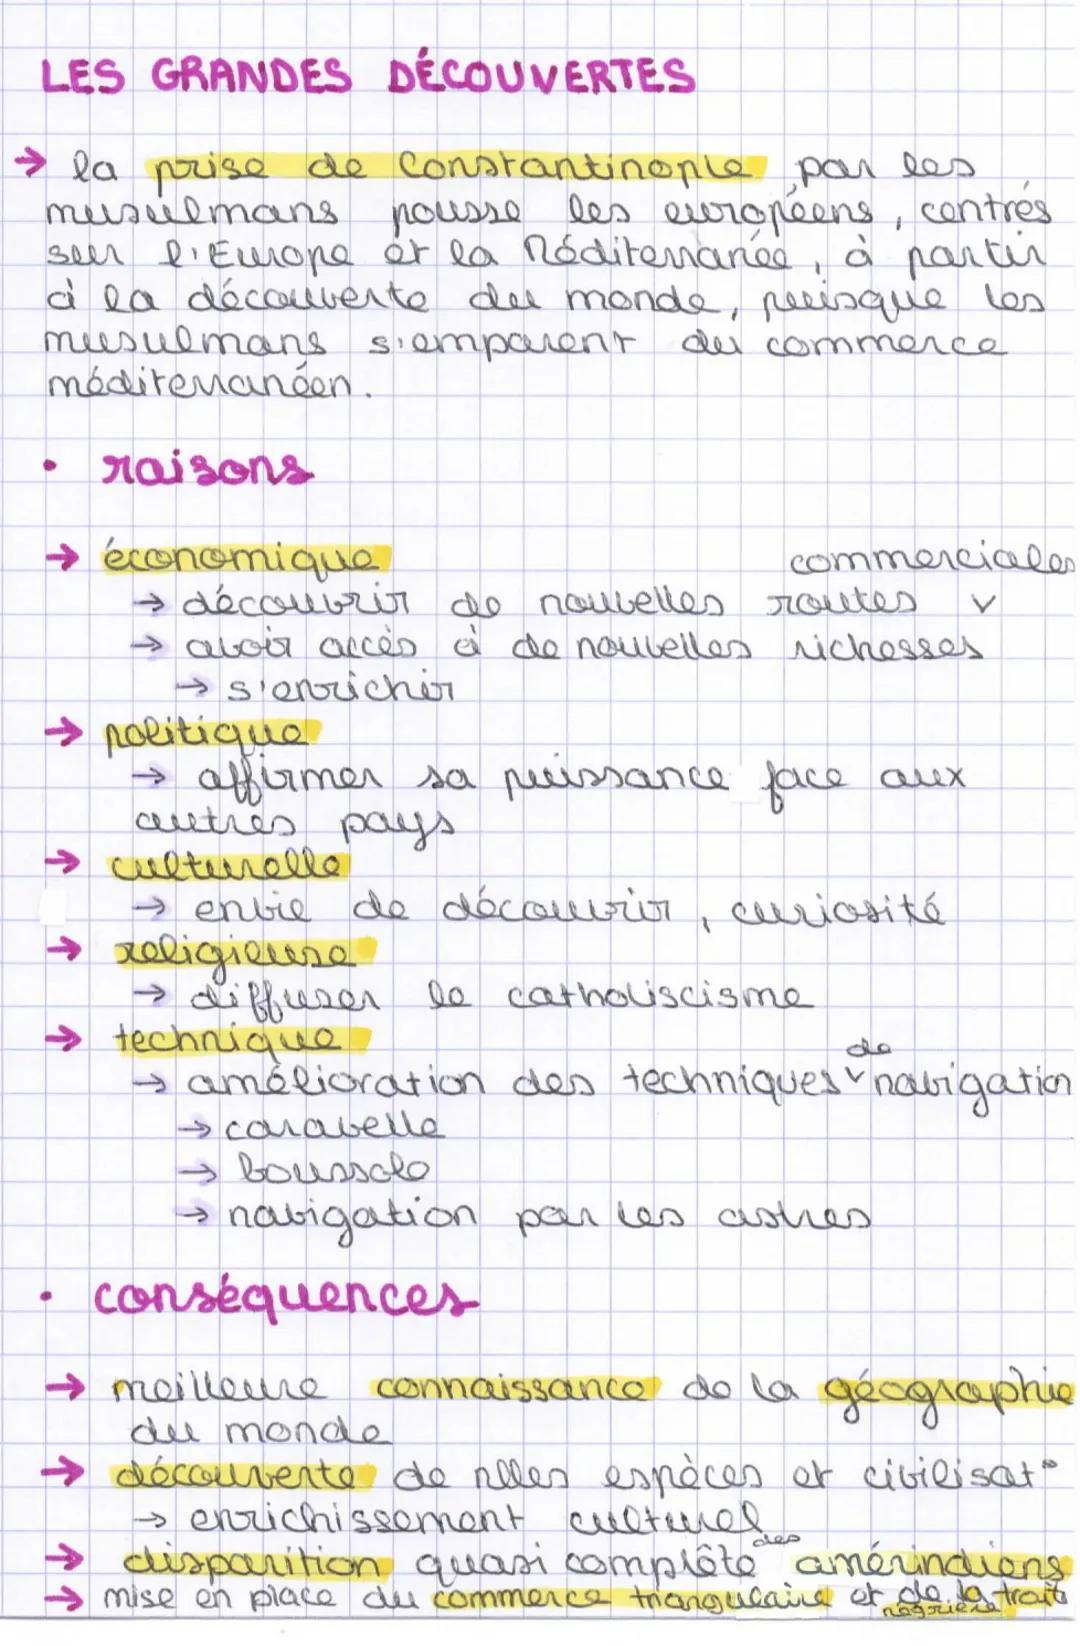 LES GRANDES DÉCOUVERTES
→ la prise de Constantinople par les
musulmans pousse les européens, centrés
sur l'Europe et la Méditerranée, à partir
à la découverte du monde, puisque les
musulmans s'emparent du commerce
méditerranéen.
• raisons
→ économique
commerciales
→ découvrir de nouvelles routes v
→ avoir accès à de nouvelles richesses
→ s'enrichir
→ politique
→ affirmer sa puissance face aux
autres pays
→ culturelle
→ envie de découvrir, curiosité
→ religieuse
→ diffuser le catholiscisme
→ technique
de
→ amélioration des techniques v navigation
→ caravelle
→ boussole
→ navigation par les astres
• conséquences
→ meilleure connaissance de la géographie
du monde
→ découverte de nlles espèces et civilisat°
→ enrichissement culturel
des
→ disparition quasi complète amérindiens
→ mise en place du commerce triangulaire et de la traite
négrière